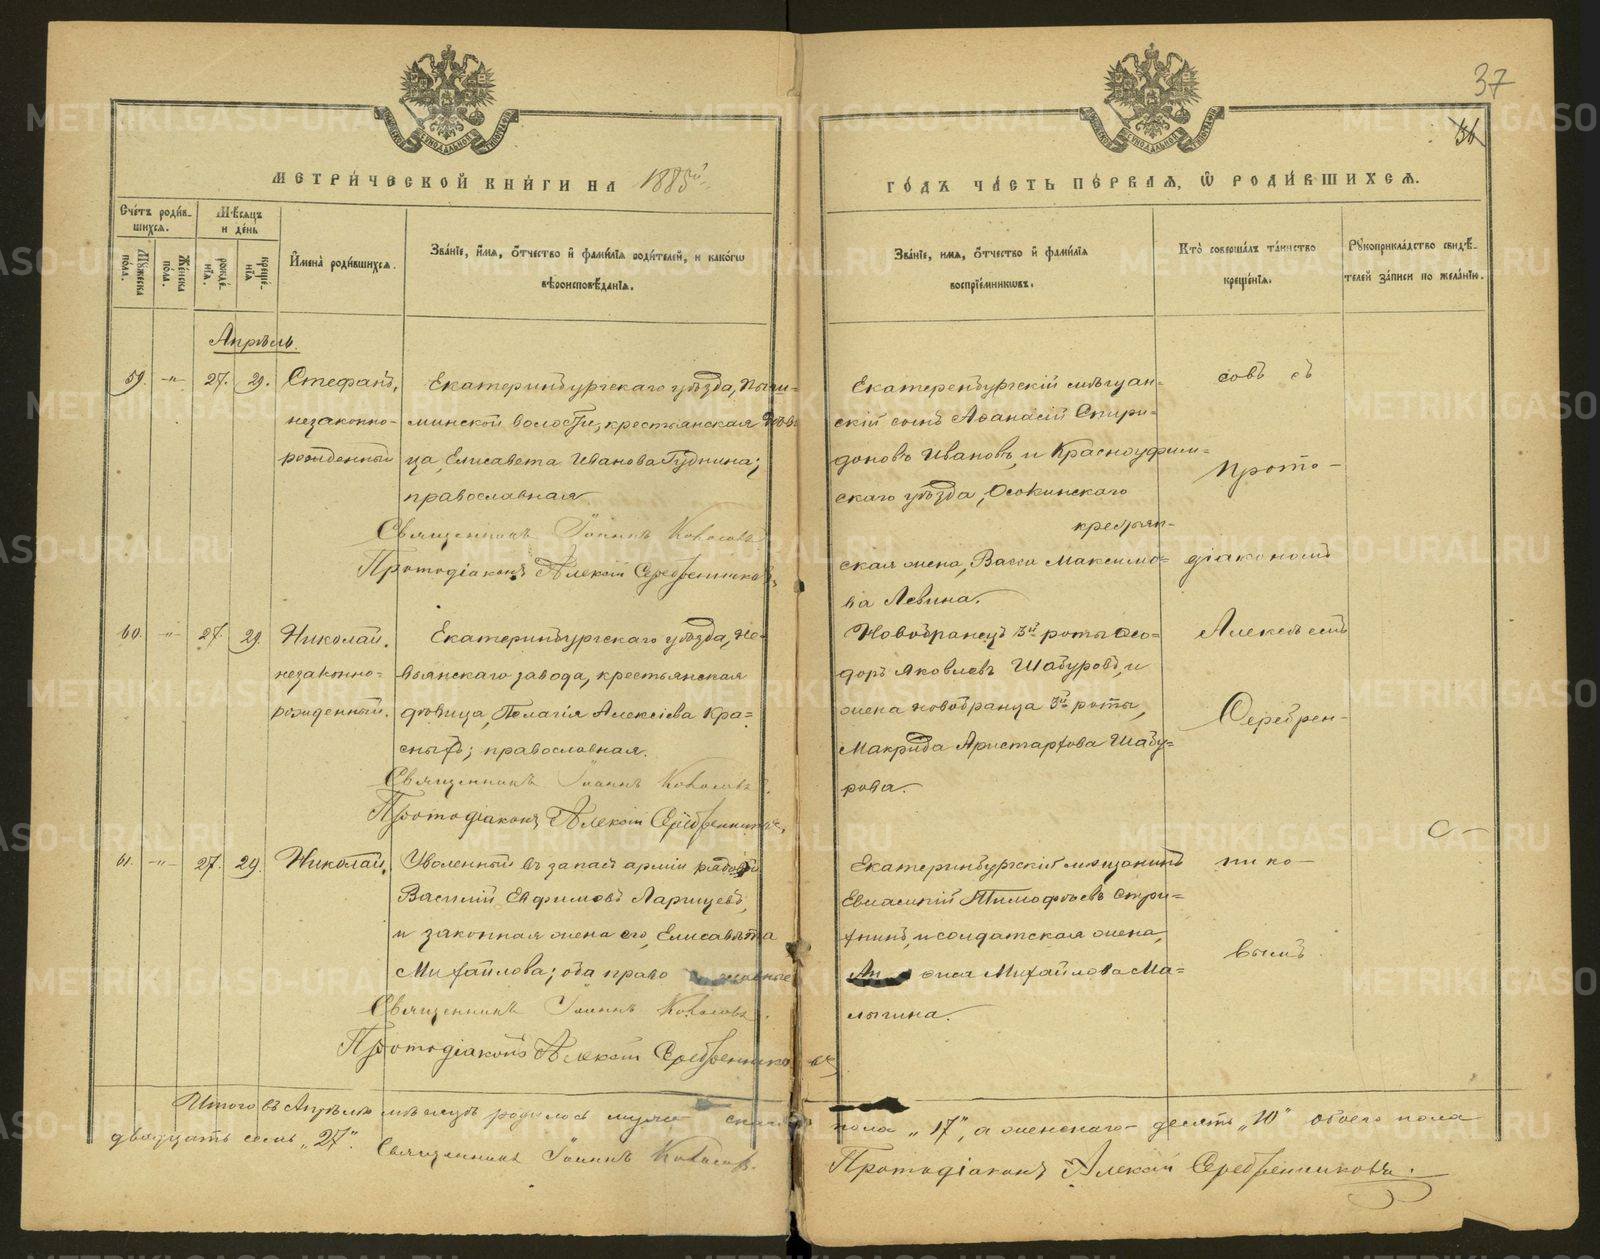 37
36
МЕТРИЧЕСКОЙ КНИГИ НА 1885й
ГОДЪ ЧАСТЬ ПЕРВАЯ, Ѽ РОДИВШИХСЯ.
Счетъ родив-
шихся.
Мужеска пола.
Женска пола.
Мѣсяцъ
и день
рожде-
нія.
креще-
нія
Имена родившихся.
Званіе, имя, отчество и фамилія родителей, и какогѡ
вѣроисповѣданія.
Званіе, имя, отчество и фамилія
воспріемниковъ.
Кто совершалъ таинство
крещенія.
Рукоприкладство свидѣ-
телей записи по желанію.
Апрѣль.
59. -„- 27. 29. Стефанъ,
незаконно-
рожденный
Екатеринбургскаго уѣзда, Пыш-
минской волости, крестьянская дѣви
ца, Елисавета Иванова Гуднина;
православная
Священникъ Іоаннъ
Протодіаконъ Алексій Серебренниковъ,
Екатеренбургскій мѣщан-
скій сынъ Аѳанасій Спири-
доновъ Ивановъ, и Красноуфим-
скаго уѣзда, Осокинскаго
крестьян-
ская жена, Васса Максимо-
ва Левина.
совъ съ
Прото-
діакономъ
Алексѣемъ
Серебрен-
нико-
вымъ
60. -„- 27. 29. Николай.
незаконно-
рожденный.
Екатеринбургскаго уѣзда, Не-
вьянскаго завода, крестьянская
дѣвица, Пелагія Алексіева Кра-
сныхъ; православная.
Священникъ Іоаннъ
Протодіаконъ Алексій Серебренниковъ,
Новобранецъ 3й роты Ѳео-
доръ Яковлевъ Шабуровъ, и
жена новобранца 3й роты,
Макрида Аристархова Шабу-
рова.
61. -„- 27. 29. Николай,
Уволенный въ запасъ арміи рядовой
Василій Евфимовъ Ларищевъ,
и законная жена его, Елисавета
Михайлова; оба православные
Священникъ Іоаннъ
Протодіаконъ Алексій Серебренниковъ
Екатеринбургскій мѣщанинъ
Евласпій Тимофѣевъ Стри-
жнинъ, и солдатская жена,
Михайлова Ма-
лыгина.
Итого въ Апрѣлѣ мѣсяцѣ родилось мужескаго пола „17", а женскаго десять „10" обоего пола
двадцать семь „27".
Священникъ Іоаннъ
Протодіаконъ Алексій Серебренниковъ.
METRIKI.GASO-URAL.RU